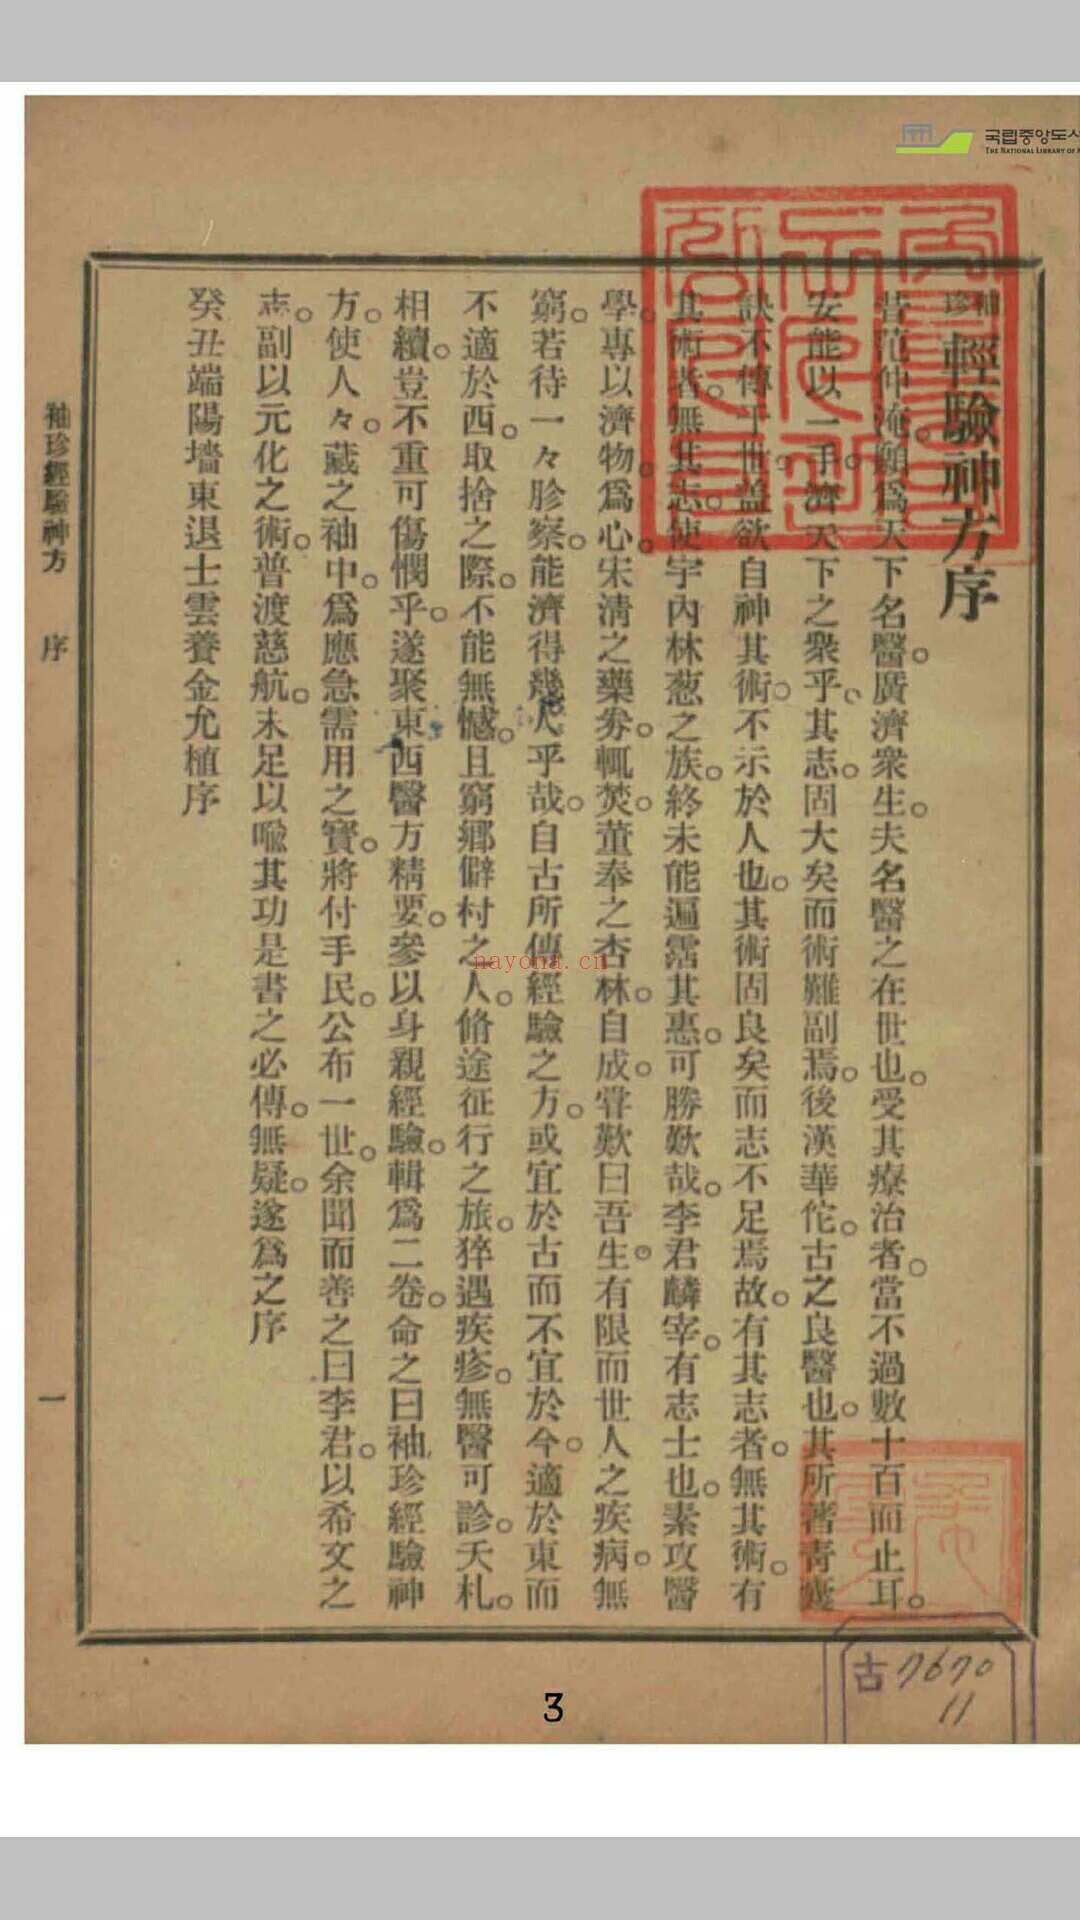 국립중앙도서
THE NATIONAL LIBRARY OF
袖珍輕驗神方序
昔范仲淹。願爲天下名醫。廣濟衆生。夫名醫之在世也。受其療治者。當不過數十百而止耳。
安能以一手。濟天下之衆乎。其志。固大矣而術難副焉。後漢華佗。古之良醫也。其所著靑囊
訣不傳于世。盖欲自神其術。不示於人也。其術固良矣而志不足焉。故。有其志者。無其術。有
其術者。無其志。使宇內林葱之族。終未能遍霑其惠。可勝歎哉。李君麟宰。有志士也。素攻醫
學。專以濟物。爲心。宋淸之藥劵。輒焚。董奉之杏林。自成。甞歎曰吾生。有限而世人之疾病。無
窮。若待一々胗察。能濟得幾人乎哉。自古所傳經驗之方。或宜於古而不宜於今。適於東而
不適於西。取捨之際。不能無憾。且窮鄉僻村之人。脩途征行之旅。猝遇疾疹。無醫可診。夭札。
相續。豈不重可傷憫乎。遂聚東西醫方精要。參以身親經驗。輯爲二卷。命之曰袖珍經驗神
方。使人々。藏之袖中。爲應急需用之寶。將付手民。公布一世。余聞而善之曰李君。以希文之
志。副以元化之術。普渡慈航。未足以喩其功是書之必傳。無疑。遂爲之序
癸丑端陽墻東退士雲養金允植序
袖珍經驗神方 序 一
nayona.cn
古7670
11
3